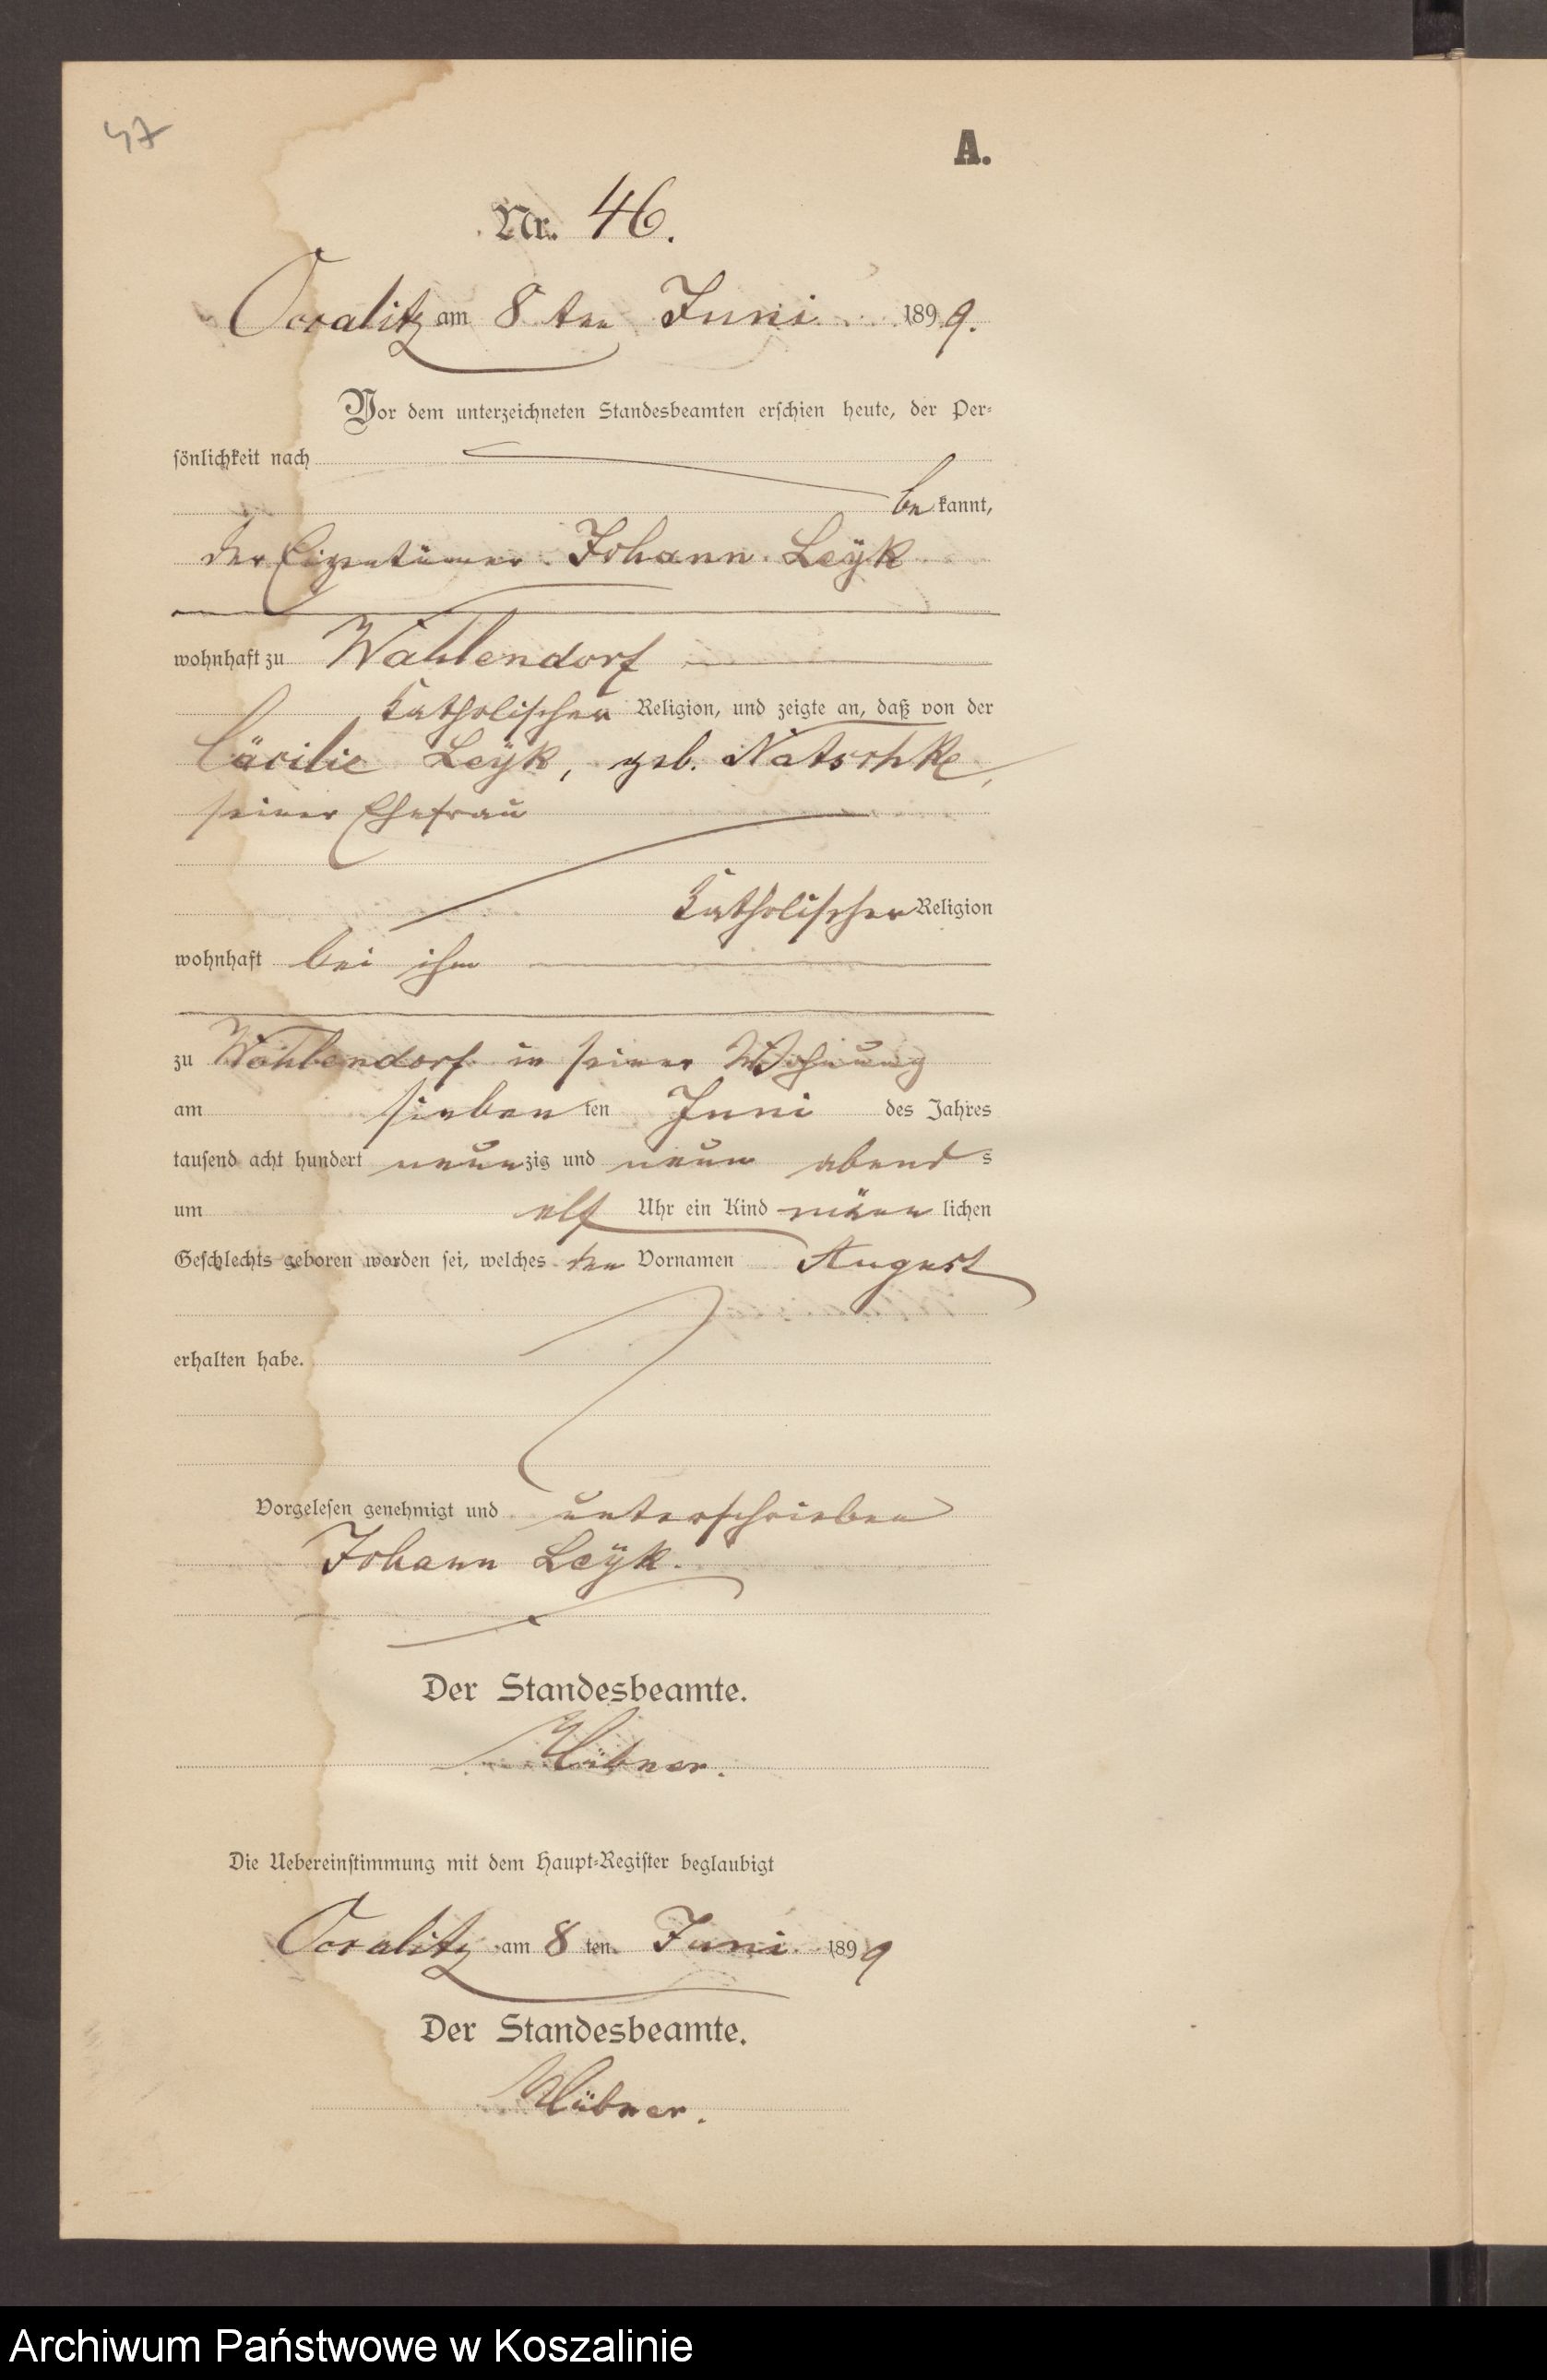 47
A.
Nr. 46.
am 8 ten Juni 1899.
Vor dem unterzeichneten Standesbeamten erschien heute, der Per-
sönlichkeit nach
be kannt,
der Eigentümer Johann Leÿk
wohnhaft zu Wahlendorf
katholischer Religion, und zeigte an, daß von der
Cäcilie Leÿk, geb. Natschke,
seiner Ehefrau
katholischer Religion
wohnhaft bei ihm
zu Wahlendorf in seiner Wohnung
am sieben ten Juni des Jahres
tausend acht hundert neunzig und neun abend s
um elf Uhr ein Kind männ lichen
Geschlechts geboren worden sei, welches den Vornamen August
erhalten habe.
Vorgelesen genehmigt und unterschrieben
Johann Leÿk.
Der Standesbeamte.
Hübner.
Die Uebereinstimmung mit dem Haupt-Register beglaubigt
am 8 ten Juni 1899
Der Standesbeamte.
Hübner.
Archiwum Państwowe w Koszalinie